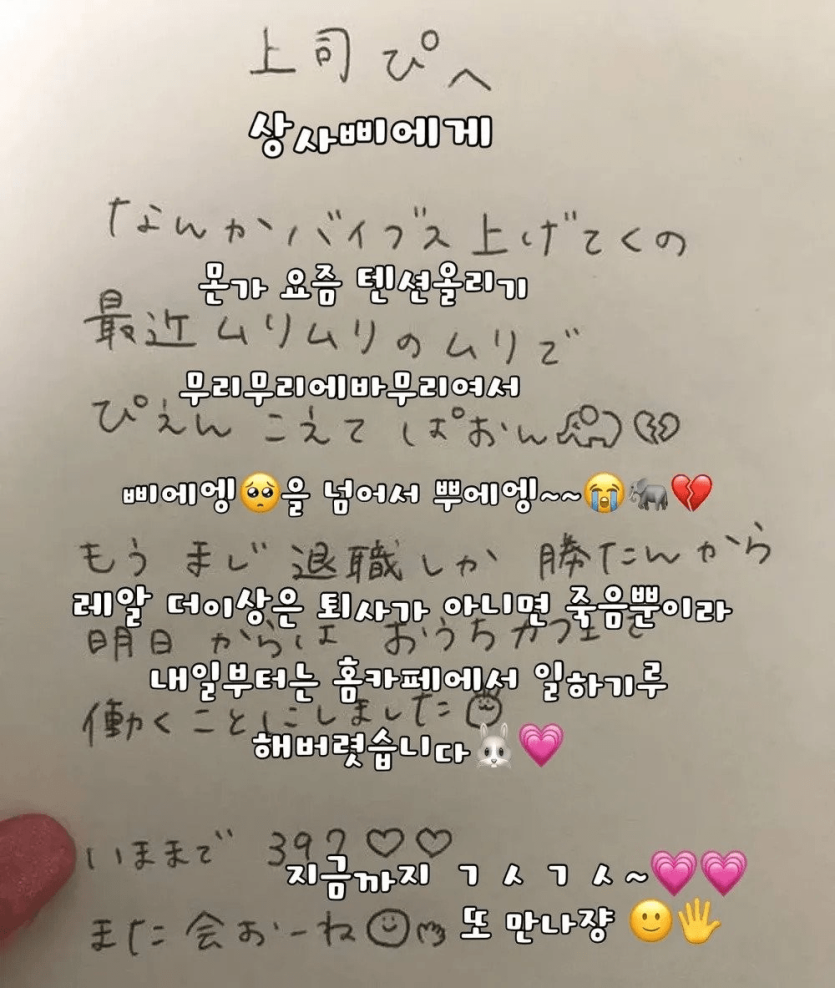 上司ぴへ
상사삐에게
なんかバイブス上げてくの
몬가 요즘 텐션올리기
最近ムリムリのムリで
무리무리에바무리여서
ぴえんこえてぱおん🐘💔
삐에엥🥺을 넘어서 뿌에엥~~😭🐘💔
もうまじ退職しか勝たんから
레알 더이상은 퇴사가 아니면 죽음뿐이라
明日からはおうちカフェで
내일부터는 홈카페에서 일하기루
働くことにしました
해버렷습니다🐰💗
いままで 392♡♡
지금까지 ㄱ ㅅ ㄱ ㅅ ~💗💗
また会おーね
또 만나쟝 🙂🖐